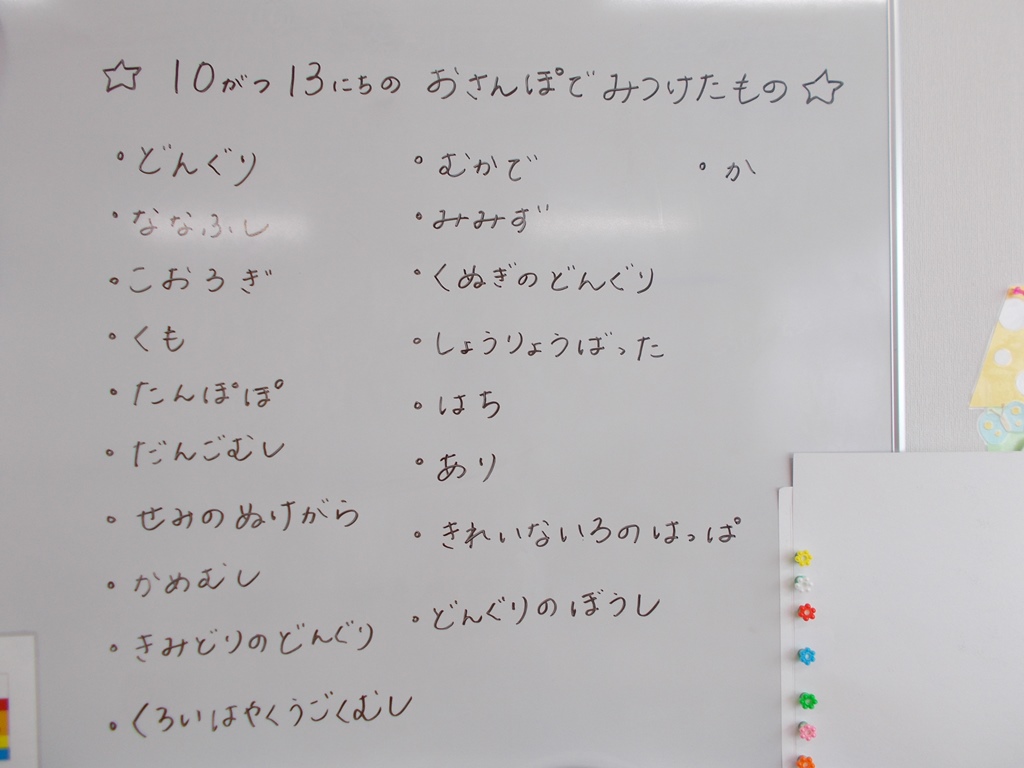 ☆ 10がつ13にちの おさんぽで みつけたもの ☆
・どんぐり
・ななふし
・こおろぎ
・くも
・たんぽぽ
・だんごむし
・せみのぬけがら
・かめむし
・きみどりのどんぐり
・くろいはやくうごくむし
・むかで
・みみず
・くぬぎのどんぐり
・しょうりょうばった
・はち
・あり
・きれいないろのはっぱ
・どんぐりのぼうし
・か